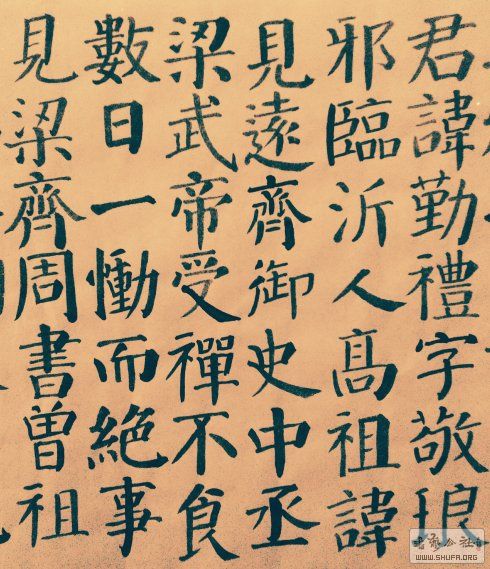 君諱勤禮字敬琅
邪臨沂人髙祖諱
見遠齊御史中丞
梁武帝受禪不食
數日一慟而絕事
見梁齊周書曾祖
WWW.SHUFA.ORG